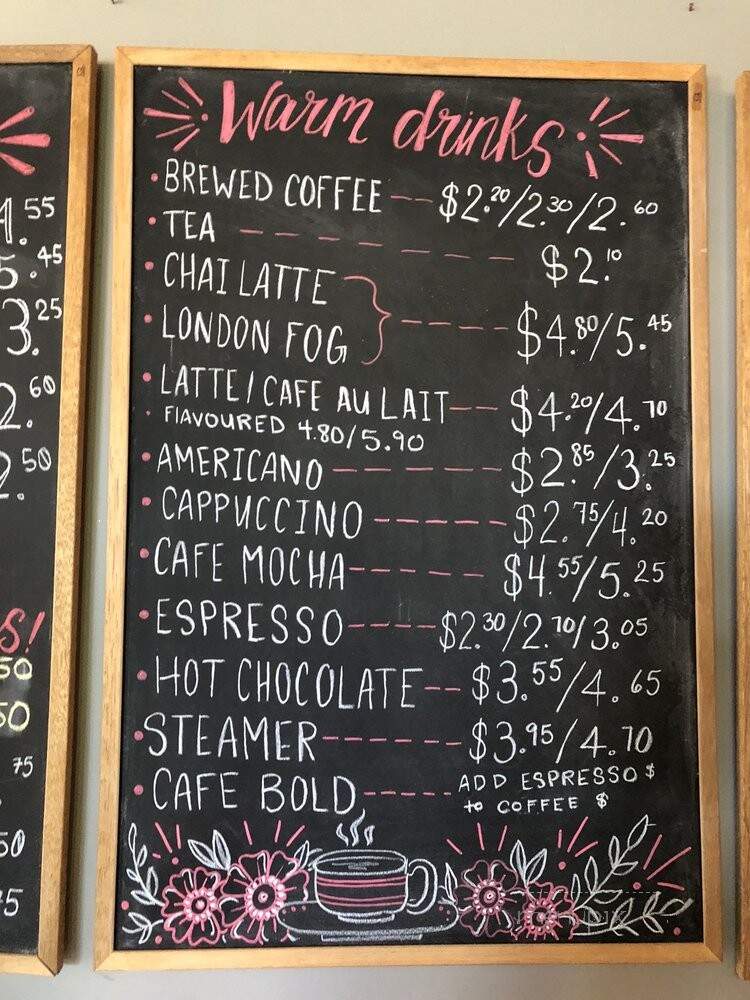 Warm drinks
• BREWED COFFEE -- $2.20/2.30/2.60
• TEA ------ $2.10
• CHAI LATTE
• LONDON FOG } ---- $4.80/5.45
• LATTE/CAFE AU LAIT -- $4.20/4.70
• FLAVOURED 4.80/5.90
• AMERICANO ----- $2.85/3.25
• CAPPUCCINO ----- $2.75/4.20
• CAFE MOCHA ----- $4.55/5.25
• ESPRESSO ---- $2.30/2.70/3.05
• HOT CHOCOLATE -- $3.55/4.65
• STEAMER ------ $3.95/4.70
• CAFE BOLD ---- ADD ESPRESSO $
to COFFEE $
.55
5.45
3.25
2.60
2.50
S!
50
50
75
50
75